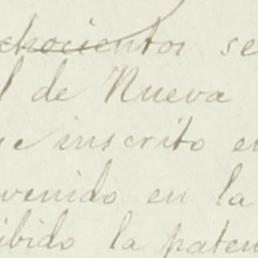 chocientos se
l de Nueva
ne inscrito e
venido en la
ibido la paten